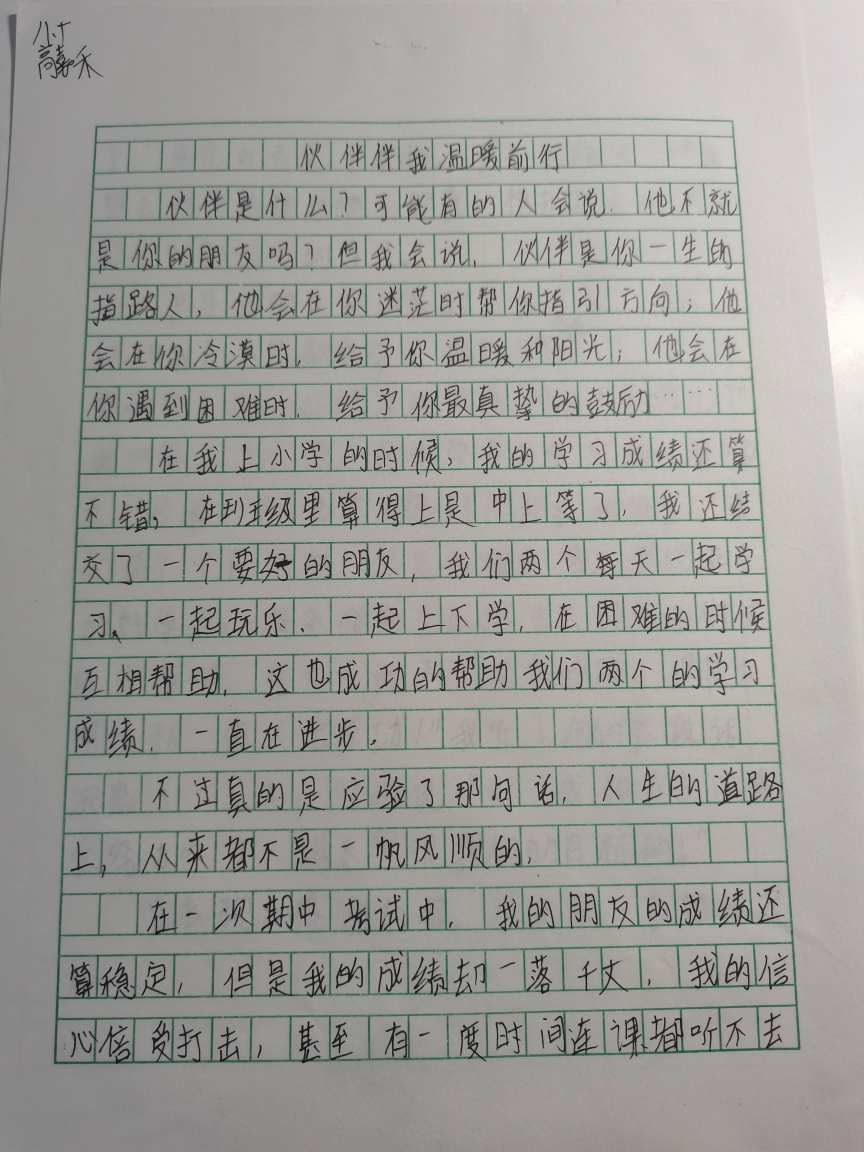 高嘉禾
伙伴伴我温暖前行
伙伴是什么?可能有的人会说.他不就
是你的朋友吗?但我会说,伙伴是你一生的
指路人,他会在你迷茫时帮你指引方向;他
会在你冷漠时.给予你温暖和阳光;他会在
你遇到困难时.给予你最真挚的鼓励……
在我上小学的时候,我的学习成绩还算
不错,在到年级里算得上是中上等了,我还结
交了一个要好的朋友,我们两个每天一起学
习、一起玩乐、一起上下学,在困难的时候
互相帮助,这也成功的帮助我们两个的学习
成绩.一直在进步.
不过真的是应验了那句话,人生的道路
上,从来都不是一帆风顺的,
在一次期中考试中,我的朋友的成绩还
算稳定,但是我的成绩却一落千丈,我的信
心倍受打击,甚至有一度时间连课都听不去